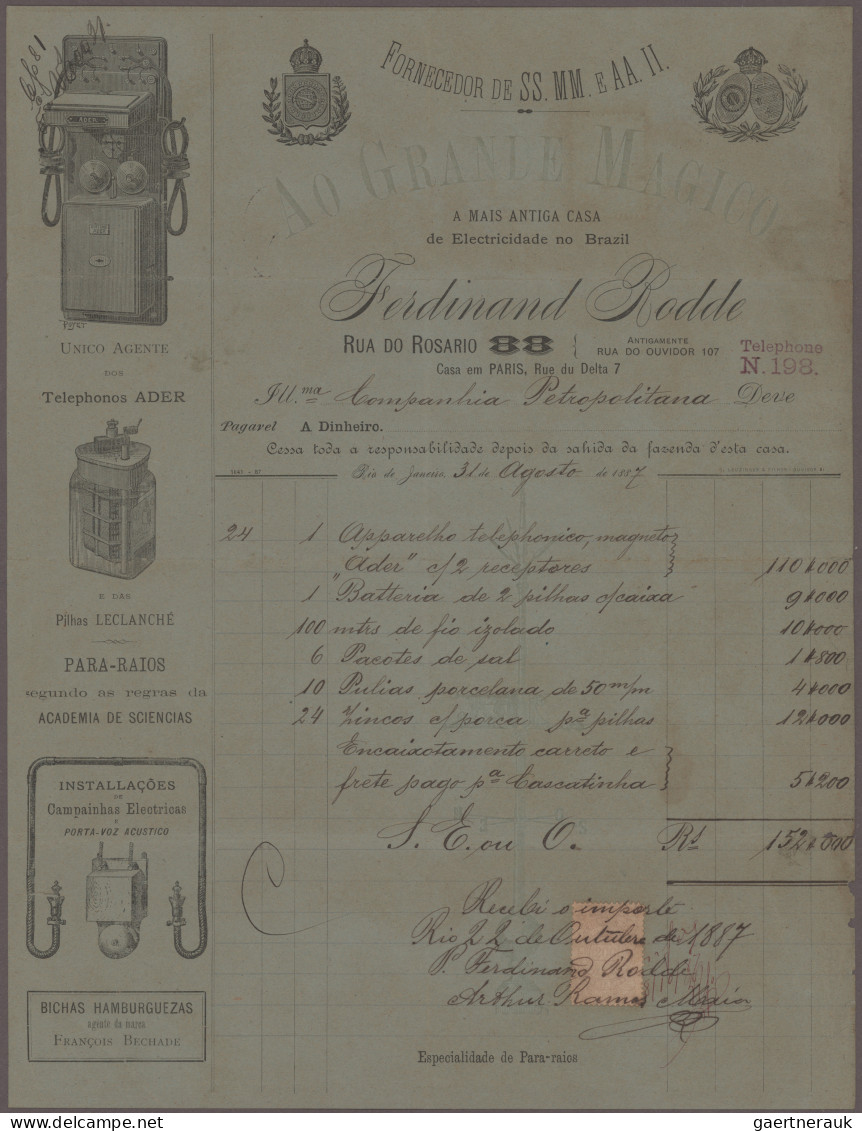 FORNECEDOR DE SS. MM. E AA. II.
AO GRANDE MAGICO
A MAIS ANTIGA CASA
de Electricidade no Brazil
Ferdinand Rodde
RUA DO ROSARIO 88
ANTIGAMENTE
RUA DO OUVIDOR 107
Telephone
N. 198.
Casa em PARIS, Rue du Delta 7
Ill.ma Companhia Petropolitana Deve
Pagavel A Dinheiro.
Cessa toda a responsabilidade depois da sahida da fazenda d'esta casa.
Rio de Janeiro, 31 de Agosto de 1887
ADER
UNICO AGENTE
DOS
Telephonos ADER
E DAS
Pilhas LECLANCHÉ
PARA-RAIOS
segundo as regras da
ACADEMIA DE SCIENCIAS
INSTALLAÇÕES
DE
Campainhas Electricas
E
PORTA-VOZ ACUSTICO
BICHAS HAMBURGUEZAS
agente da mazea
FRANÇOIS BECHADE
24 1 Apparelho telephonico, magneto
"Ader" c/2 receptores 110$000
1 Batteria de 2 pilhas c/caixa 9$000
100 mtrs de fio izolado 10$000
6 Pacotes de sal 1$800
10 Pulias porcelana de 50 m/m 4$000
24 Zincos c/porca pa pilhas 12$000
Encaixotamento carreto e
frete pago pa Cascatinha 5$200
S. E. ou O. Rs 152$000
Recebi o importe
Rio 22 de Outubro de 1887
P. Ferdinand Rodde
Arthur Ramos
Especialidade de Para-raios
gaertnerauk